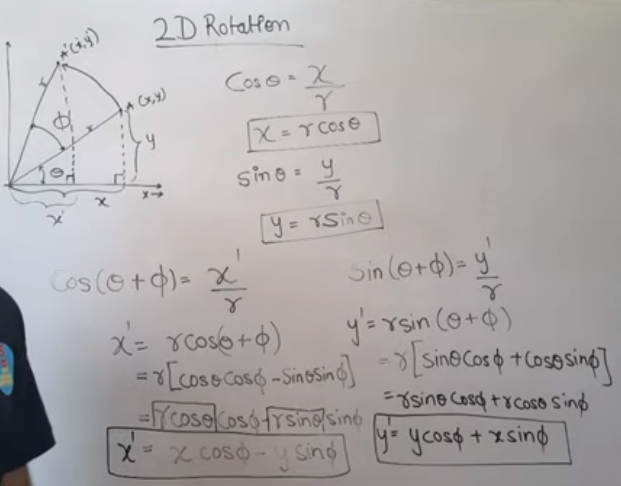 2D Rotation
A'(x',y')
A (x,y)
r
r
ϕ
θ
y
x
x→
x'
Cosθ = x/r
x = rcosθ
sinθ = y/r
y = rsinθ
Cos(θ+ϕ) = x'/r
x' = rcos(θ+ϕ)
= r[cosθcosϕ - sinθsinϕ]
= rcosθcosϕ - rsinθsinϕ
x' = xcosϕ - ysinϕ
Sin(θ+ϕ) = y'/r
y' = rsin(θ+ϕ)
= r[sinθcosϕ + cosθsinϕ]
= rsinθcosϕ + rcosθsinϕ
y' = ycosϕ + xsinϕ